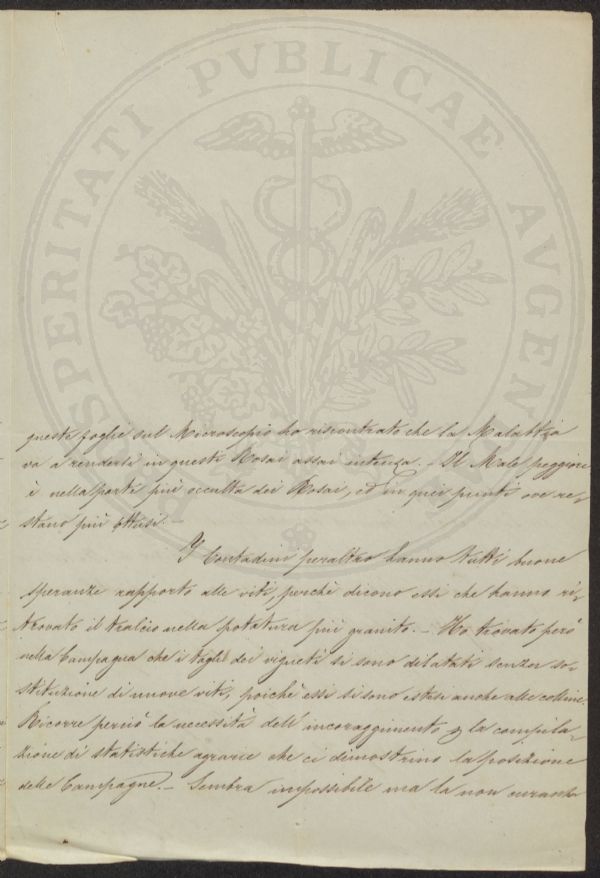 PROSPERITATI PVBLICAE AVGENDAE
queste foglie sul Microscopio ho riscontrato che la Malattia
va a rendersi in questi Rosai assai intensa. - Il Male peggiore
è nella parte più occulta dei Rosai, ed in quei punti ove re-
stano più ottusi. -
I Contadini peraltro hanno tutti buone
speranze rapporto alle viti, perchè dicono essi che hanno ri-
trovato il tralcio nella potatura più granito. - Ho trovato però
nella Campagna che i tagli dei vigneti si sono dilatati senza so-
stituzione di nuove viti, poichè essi si sono estesi anche alle colline.
Ricorre perciò la necessità dell'incoraggimento la compila-
zione di statistiche agrarie che ci dimostrino la posizione
delle Campagne. - Sembra impossibile ma la non curante